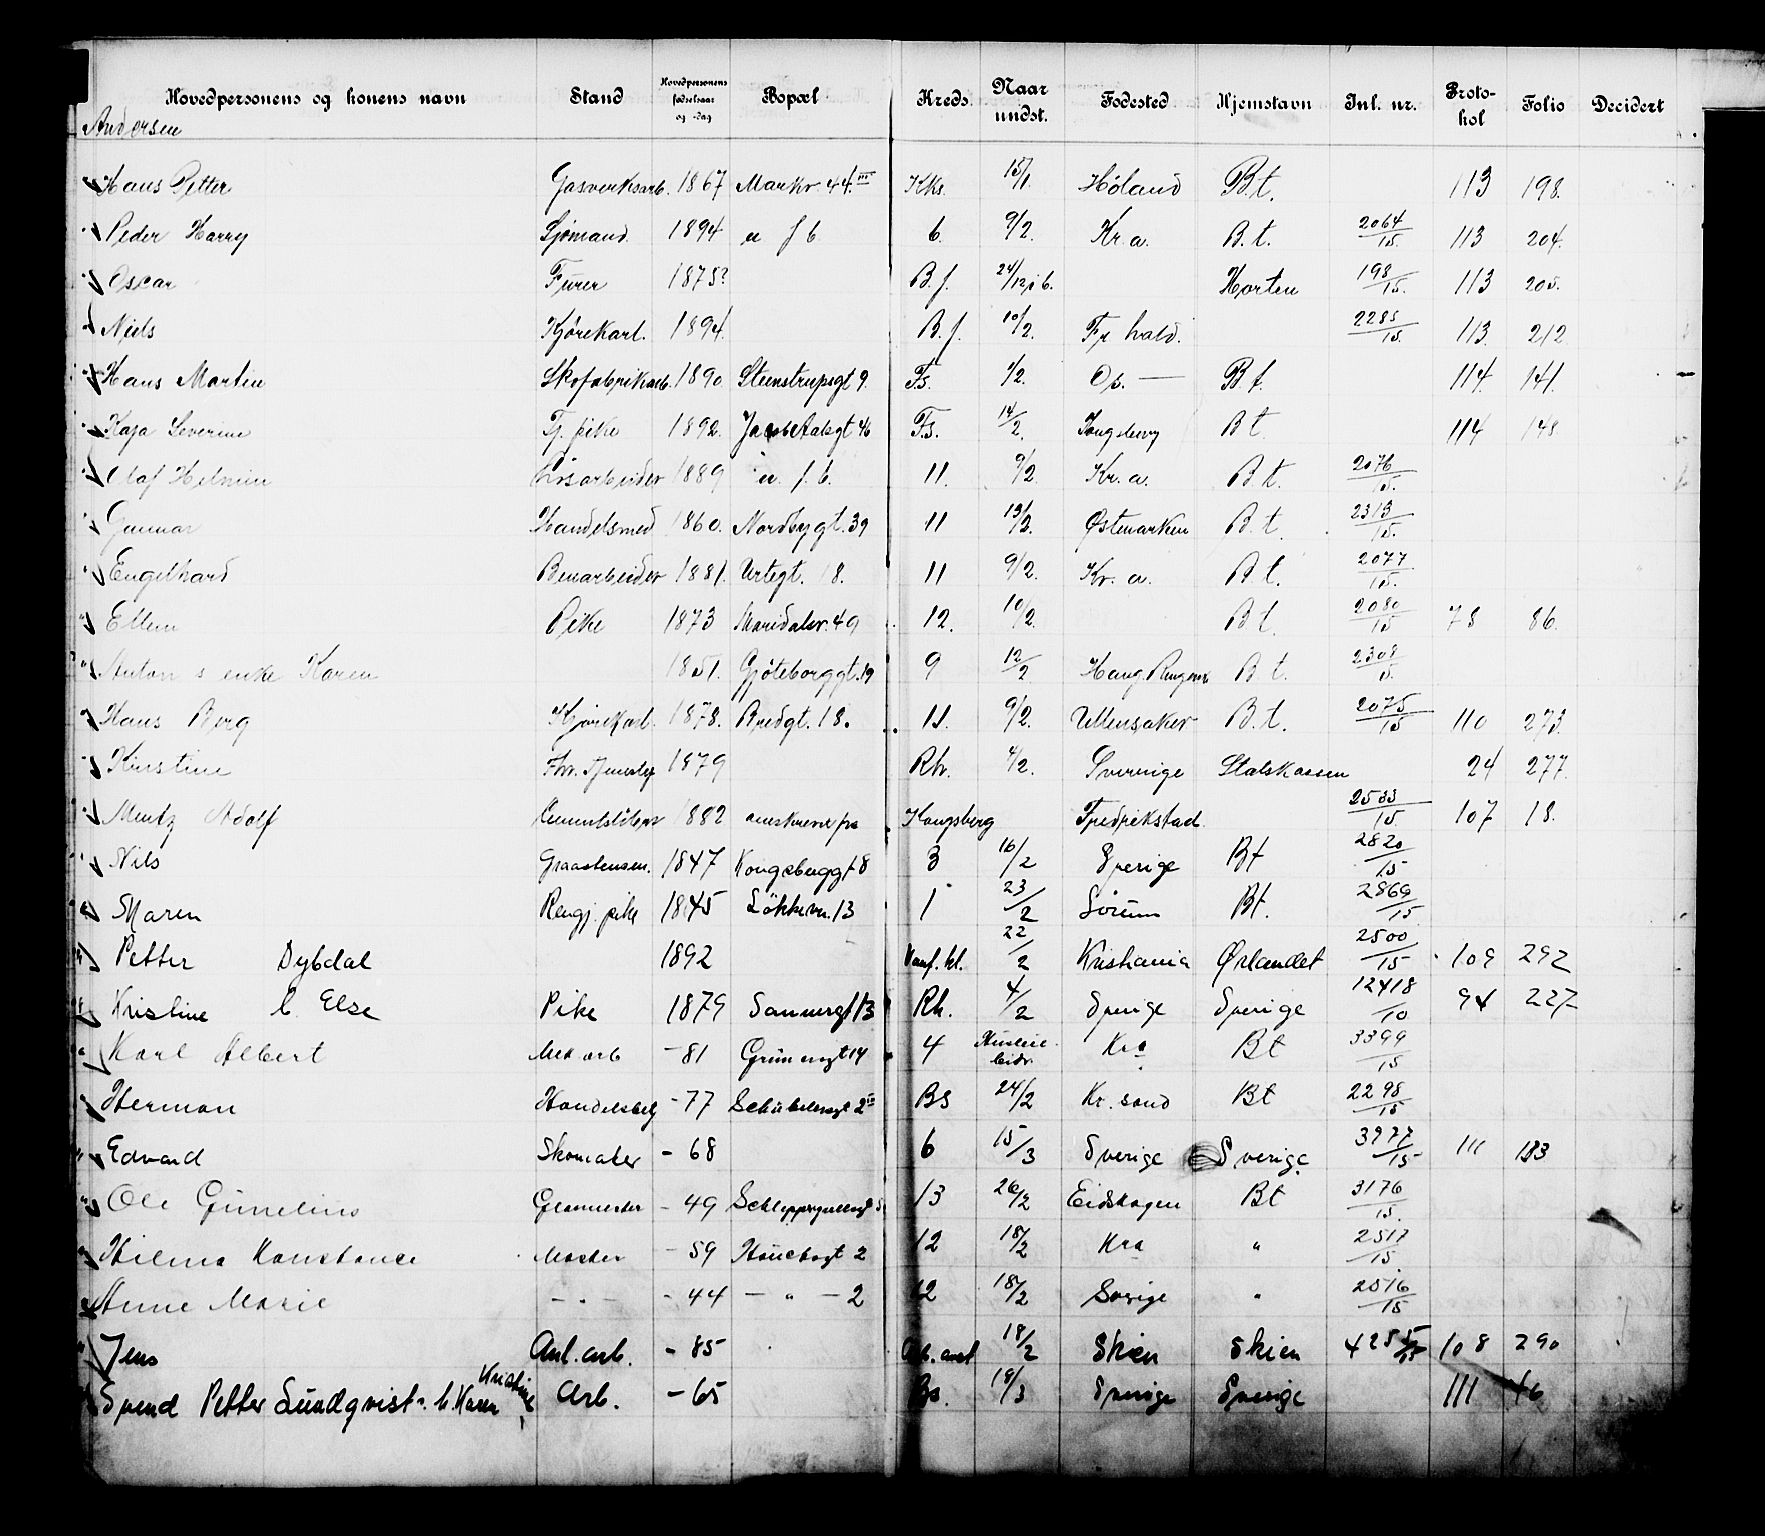 Hovedpersonens og konens navn Stand Hovedpersonens fødselsaar og -dag Bopæl Kreds Naar undst. Fødested Hjemstavn Inl. nr. Protokol Folio Decidert
Andersen
Hans Petter Gasverksarb. 1867 Markv. 44 III Kks. 15/1. Høland B.t. 113 198.
Peder Harry Sjømand. 1894 u f b 6. 9/2. Kr.a. B.t. 2064/15. 113 204.
Oscar Fyrer 1875? B.f. Horten 198/15. 113 205.
Niels Kjørekarl. 1894. B.f. 10/2. Fr. hald. 2285/15. 113. 212
Hans Martin Skofabrikarb. 1890 Steenstrupsgt 9. Fs. 1/2. Op. — B.t. 114. 141.
Kaja Severine Tj. pike 1892. Jacob Aalsgt 46 Fs. 14/2. B t. 114 148
Olaf Løsarbeider 1889 u. f. b. 11. 9/2 Kr. a. B t. 2076/15.
Gunnar Handelsmed 1860. Nordbygt. 39 11 13/2. Østmarken B. t. 2313/15.
Engelhard Benarbeider 1881. Urtegt. 18. 11 9/2. Kr. a. B t. 2077/15.
Ellen Pike 1873 Maridalsv. 49 12. 10/2. B t. 2080/15 78 86.
Anton s enke Karen 1851. Gjøteborggt. 19 9 12/2 Haug B. t. 2308/15.
Hans Berg Kjørekarl. 1878. Bredgt. 18. 11. 9/2. Ullensaker B. t. 2075/15 110 273.
Kirstine Forr. 1879 Rh. 4/2. Sverrige Statskassen 24 277.
Mentz Adolf Cementstøper 1882 Kongsberg Fredrikstad 2533/15. 107 18.
Nils 1847 Kongsberggt 8 3 16/2 Sverige Bt 2820/15
Maren Rengj. pike 1845 Løkkevn. 13 1 23/2 Sørum Bt. 2869/15
Petter Dybdal 1892 22/2 Kristiania Ørlandet 2500/15 109 292
Kristine C. Else Pike 1879 Sannergt 13 Rh. 4/2 Sverige Sverige 12418/10 94 227
Karl Albert Mek arb -81 Grünersgt 14 4 Kra Bt 3399/15
Herman Handelsbetj -77 Schübelersgt 2 III Bs 24/2 Kr. sand Bt 2298/15
Edvard Skomaker - 68 6 15/3 Sverige Sverige 3977/15 111 183
Ole Gunelius Glasmester - 49 Schleppegrellsgt 13 26/2 Eidskogen Bt 3176/15.
Hilma Konstance Mosker - 59 Hauchsgt 2 12 18/2 Kra " 2517/15
Anne Marie — " — - 44 — " — 2 12 18/2 Sverige " 2516/15
Jens Anl. arb. - 85 Arb. anst 18/2 Skien Skien 4255/15 108 290
Svend Petter Lundqvist h. Karen Kristine Arb. - 65 Bs. 18/3 Sverige Sverige 111 46